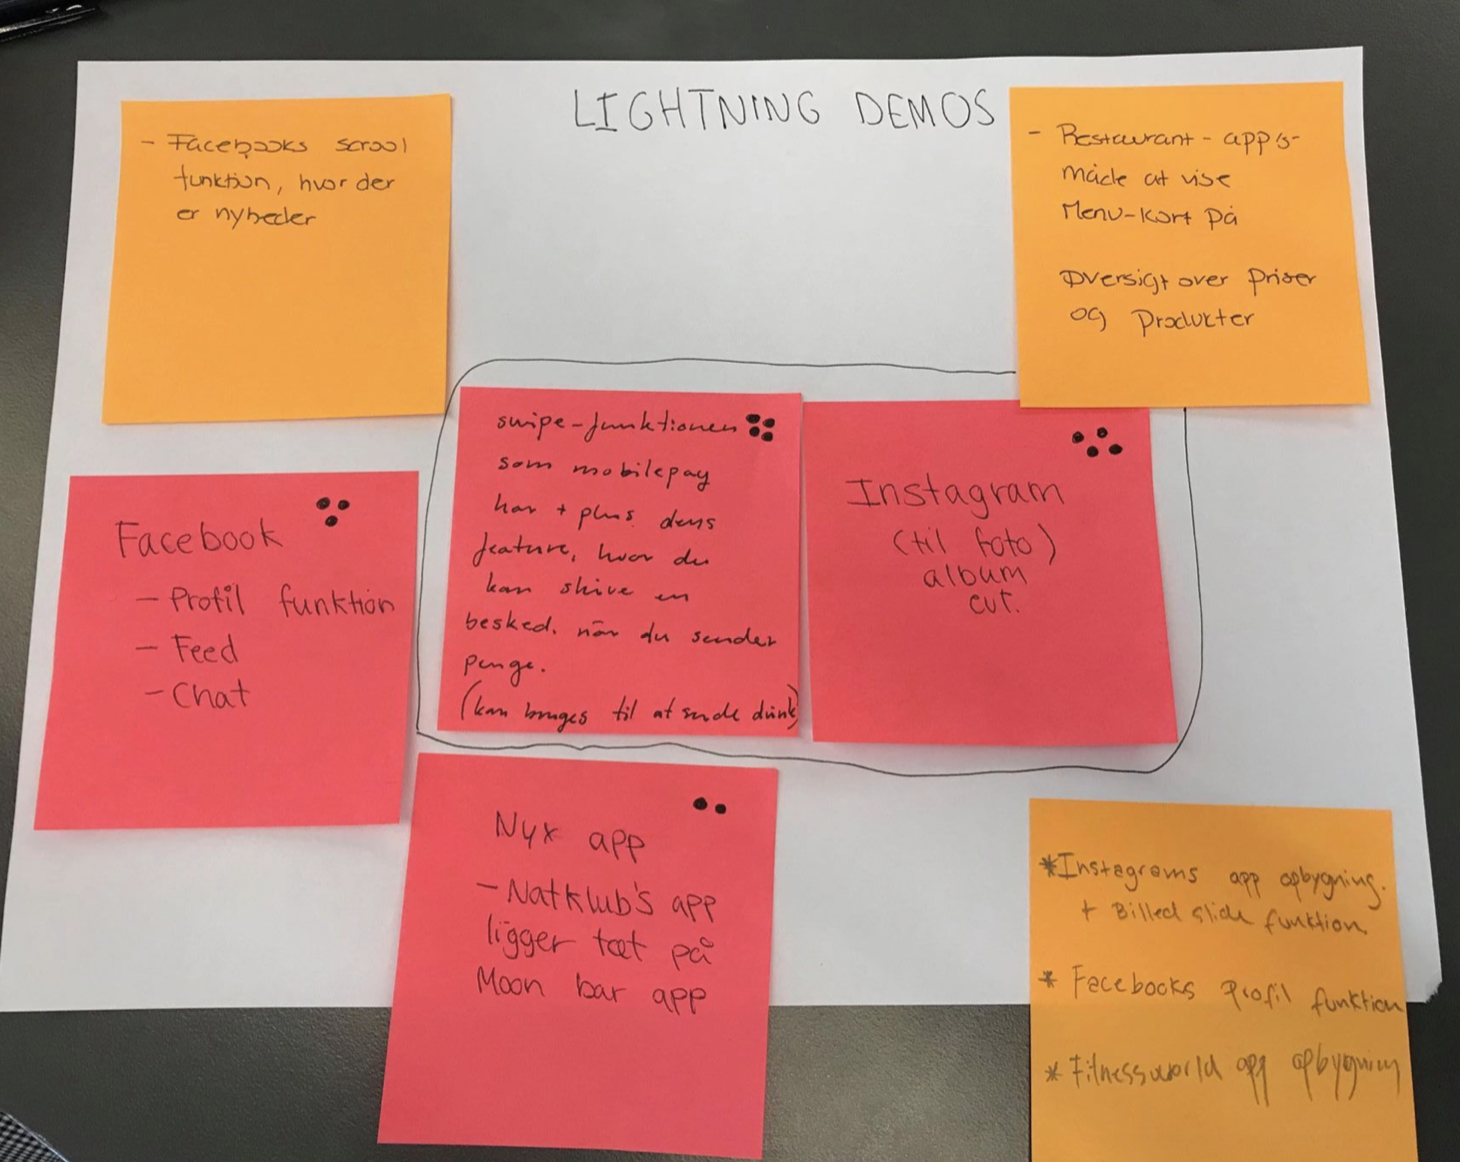 LIGHTNING DEMOS
- Facebooks scrool
funktion, hvor der
er nyheder
- Restaurant - app's-
måde at vise
Menu-kort på
Oversigt over Priser
og Produkter
Facebook
- Profil funktion
- Feed
- Chat
swipe-funktionen
som mobilepay
har + plus dens
feature, hvor du
kan skive en
besked. når du sender
penge.
(kan bruges til at sende drink)
Instagram
(til foto)
album
evt.
Nyx app
- Natklub's app
ligger tæt på
Moon bar app
*Instagrams app opbygning.
+ Billed slide funktion
* Facebooks profil funktion
* Fitnessworld app opbygning